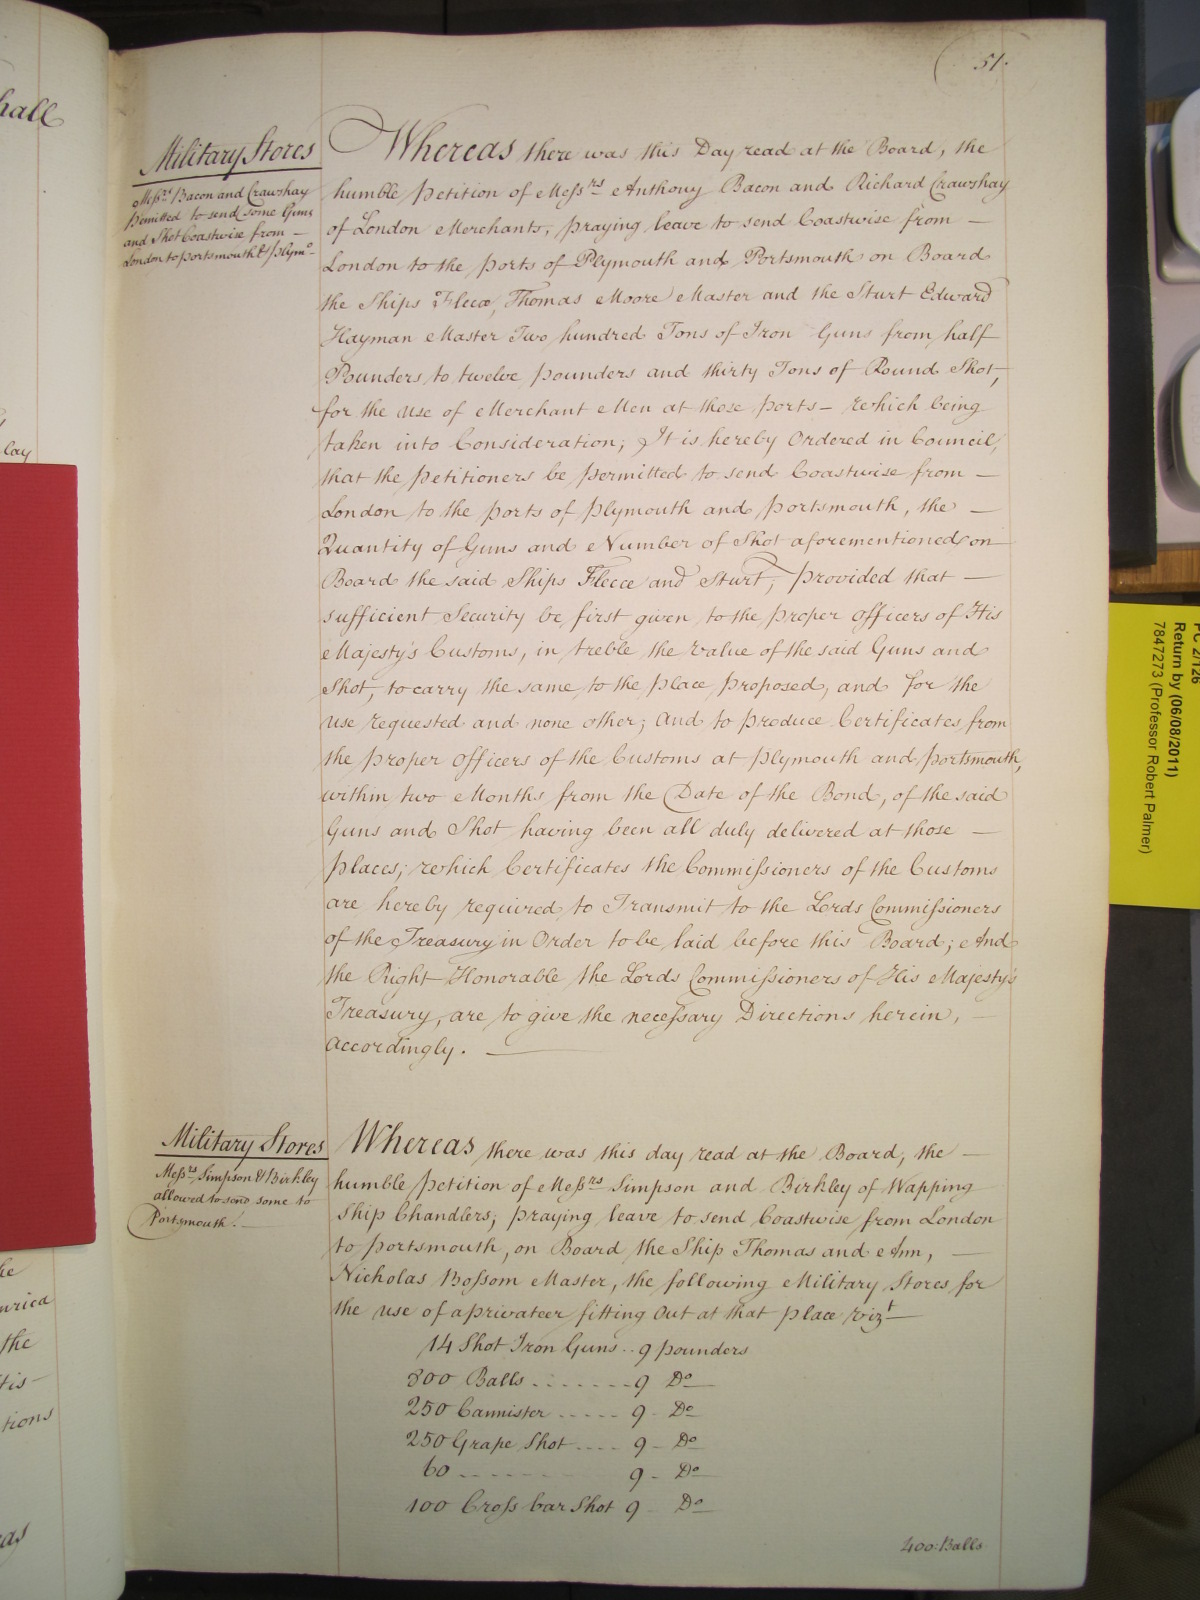 hall
lay
51.
Military Stores
Messrs Bacon and Crawshay
permitted to send some Guns
and Shot Coastwise from –
London to portsmouth & plymo
Whereas there was this Day read at the Board, the
humble petition of Messrs Anthony Bacon and Richard Crawshay
of London Merchants, praying leave to send Coastwise from –
London to the ports of Plymouth and Portsmouth on Board
the Ships Fleece, Thomas Moore Master and the Sturt Edward
Hayman Master Two hundred Tons of Iron Guns from half
Pounders to twelve pounders and thirty Tons of Round Shot,
for the use of Merchant Men at those ports – which being
taken into Consideration; It is hereby Ordered in Council,
that the petitioners be permitted to send Coastwise from –
London to the ports of plymouth and portsmouth, the –
Quantity of Guns and Number of Shot aforementioned on
Board the said Ships Fleece and Sturt, provided that –
sufficient Security be first given to the proper officers of His
Majesty's Customs, in treble the value of the said Guns and
Shot, to carry the same to the place proposed, and for the
use requested and none other; and to produce Certificates from
the proper officers of the Customs at plymouth and portsmouth,
within two Months from the Date of the Bond, of the said
Guns and Shot having been all duly delivered at those –
places; which Certificates the Commissioners of the Customs
are hereby required to Transmit to the Lords Commissioners
of the Treasury in Order to be laid before this Board; And
the Right Honorable the Lords Commissioners of His Majesty's
Treasury, are to give the necessary Directions herein, –
accordingly. –
Military Stores
Messrs Simpson & Birkley
allowed to send some to
Portsmouth. –
Whereas there was this day read at the Board, the –
humble petition of Messrs Simpson and Birkley of Wapping
Ship Chandlers; praying leave to send Coastwise from London
to portsmouth, on Board the Ship Thomas and Ann, –
Nicholas Bossom Master, the following Military Stores for
the use of a privateer fitting out at that place vizt –
14 Shot Iron Guns .. 9 pounders
300 Balls ........ 9 Do
250 Cannister ..... 9 – Do
250 Grape Shot .... 9 – Do
60 ........ 9 – Do
100 Cross bar Shot 9 Do
400: Balls
the
tis –
tions
PC 2/126
Return by (06/08/2011)
7847273 (Professor Robert Palmer)